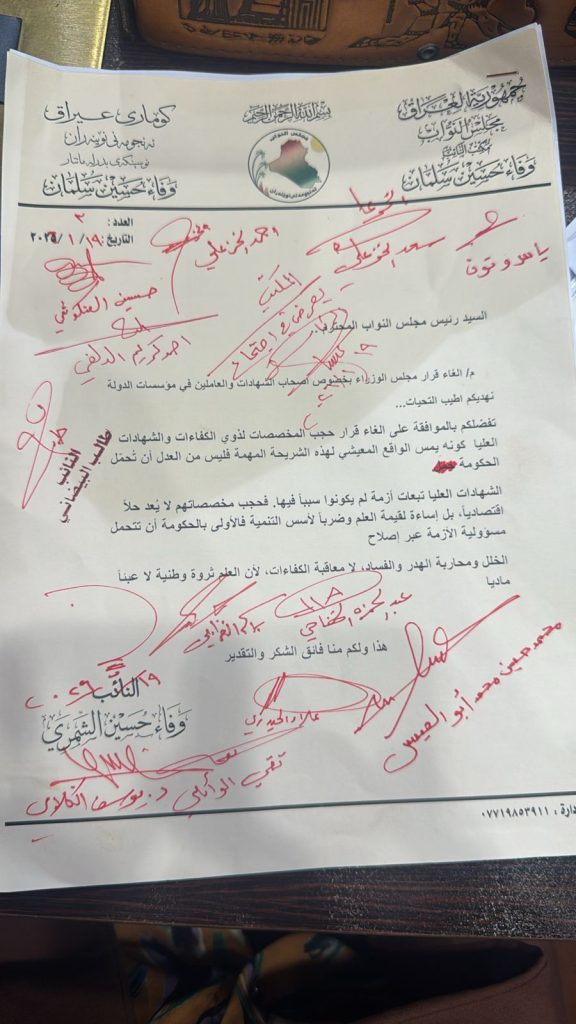 بسم الله الرحمن الرحيم
جمهورية العراق
مجلس النواب
مكتب النائبة
وفاء حسين سلمان
كۆماری عێراق
ئەنجومەنی نوێنەران
وفاء حسين سلمان
مجلس النواب
العدد : ٣
التاريخ: ١٩ / ١ /
احمد الخزعلي
سعد الخزعلي
ياسر وتوت
المكتب
يعرض في اجتماع
احمد كريم الدلفي
السيد رئيس مجلس النواب المحترم..
م/ الغاء قرار مجلس الوزراء بخصوص أصحاب الشهادات والعاملين في مؤسسات الدولة
نهديكم اطيب التحيات...
تفضلكم بالموافقة على الغاء قرار حجب المخصصات لذوي الكفاءات والشهادات
العليا كونه يمس الواقع المعيشي لهذه الشريحة المهمة فليس من العدل أن تُحمَل
الحكومة
الشهادات العليا تبعات أزمة لم يكونوا سبباً فيها. فحجب مخصصاتهم لا يُعد حلاً
اقتصادياً، بل إساءة لقيمة العلم وضرباً لأسس التنمية فالأولى بالحكومة أن تتحمل
مسؤولية الأزمة عبر إصلاح
الخلل ومحاربة الهدر والفساد، لا معاقبة الكفاءات، لأن العلم ثروة وطنية لا عبئاً
ماديا
النائب
طالب البيضاني
عبد الحمزة الخفاجي
هذا ولكم منا فائق الشكر والتقدير
النائب
١٩
٢٠٢٦
وفاء حسين الشمري
علاء الحيدري
محمد حسين محمد أبو العيس
تقي الوائلي
د. يوسف الكلابي
دارة : ٠٧٧١٩٨٥٣٩١١